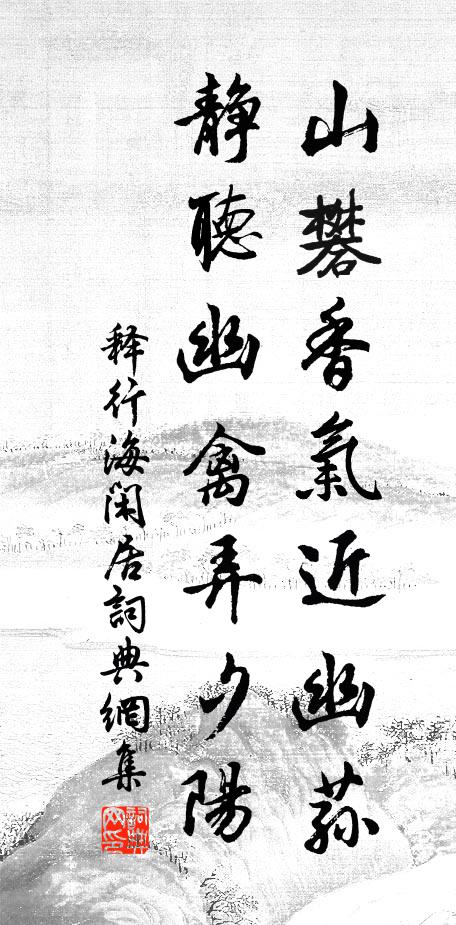 山礬香氣近幽蓀
静聽幽禽弄夕陽
释行海閑居詞典網集